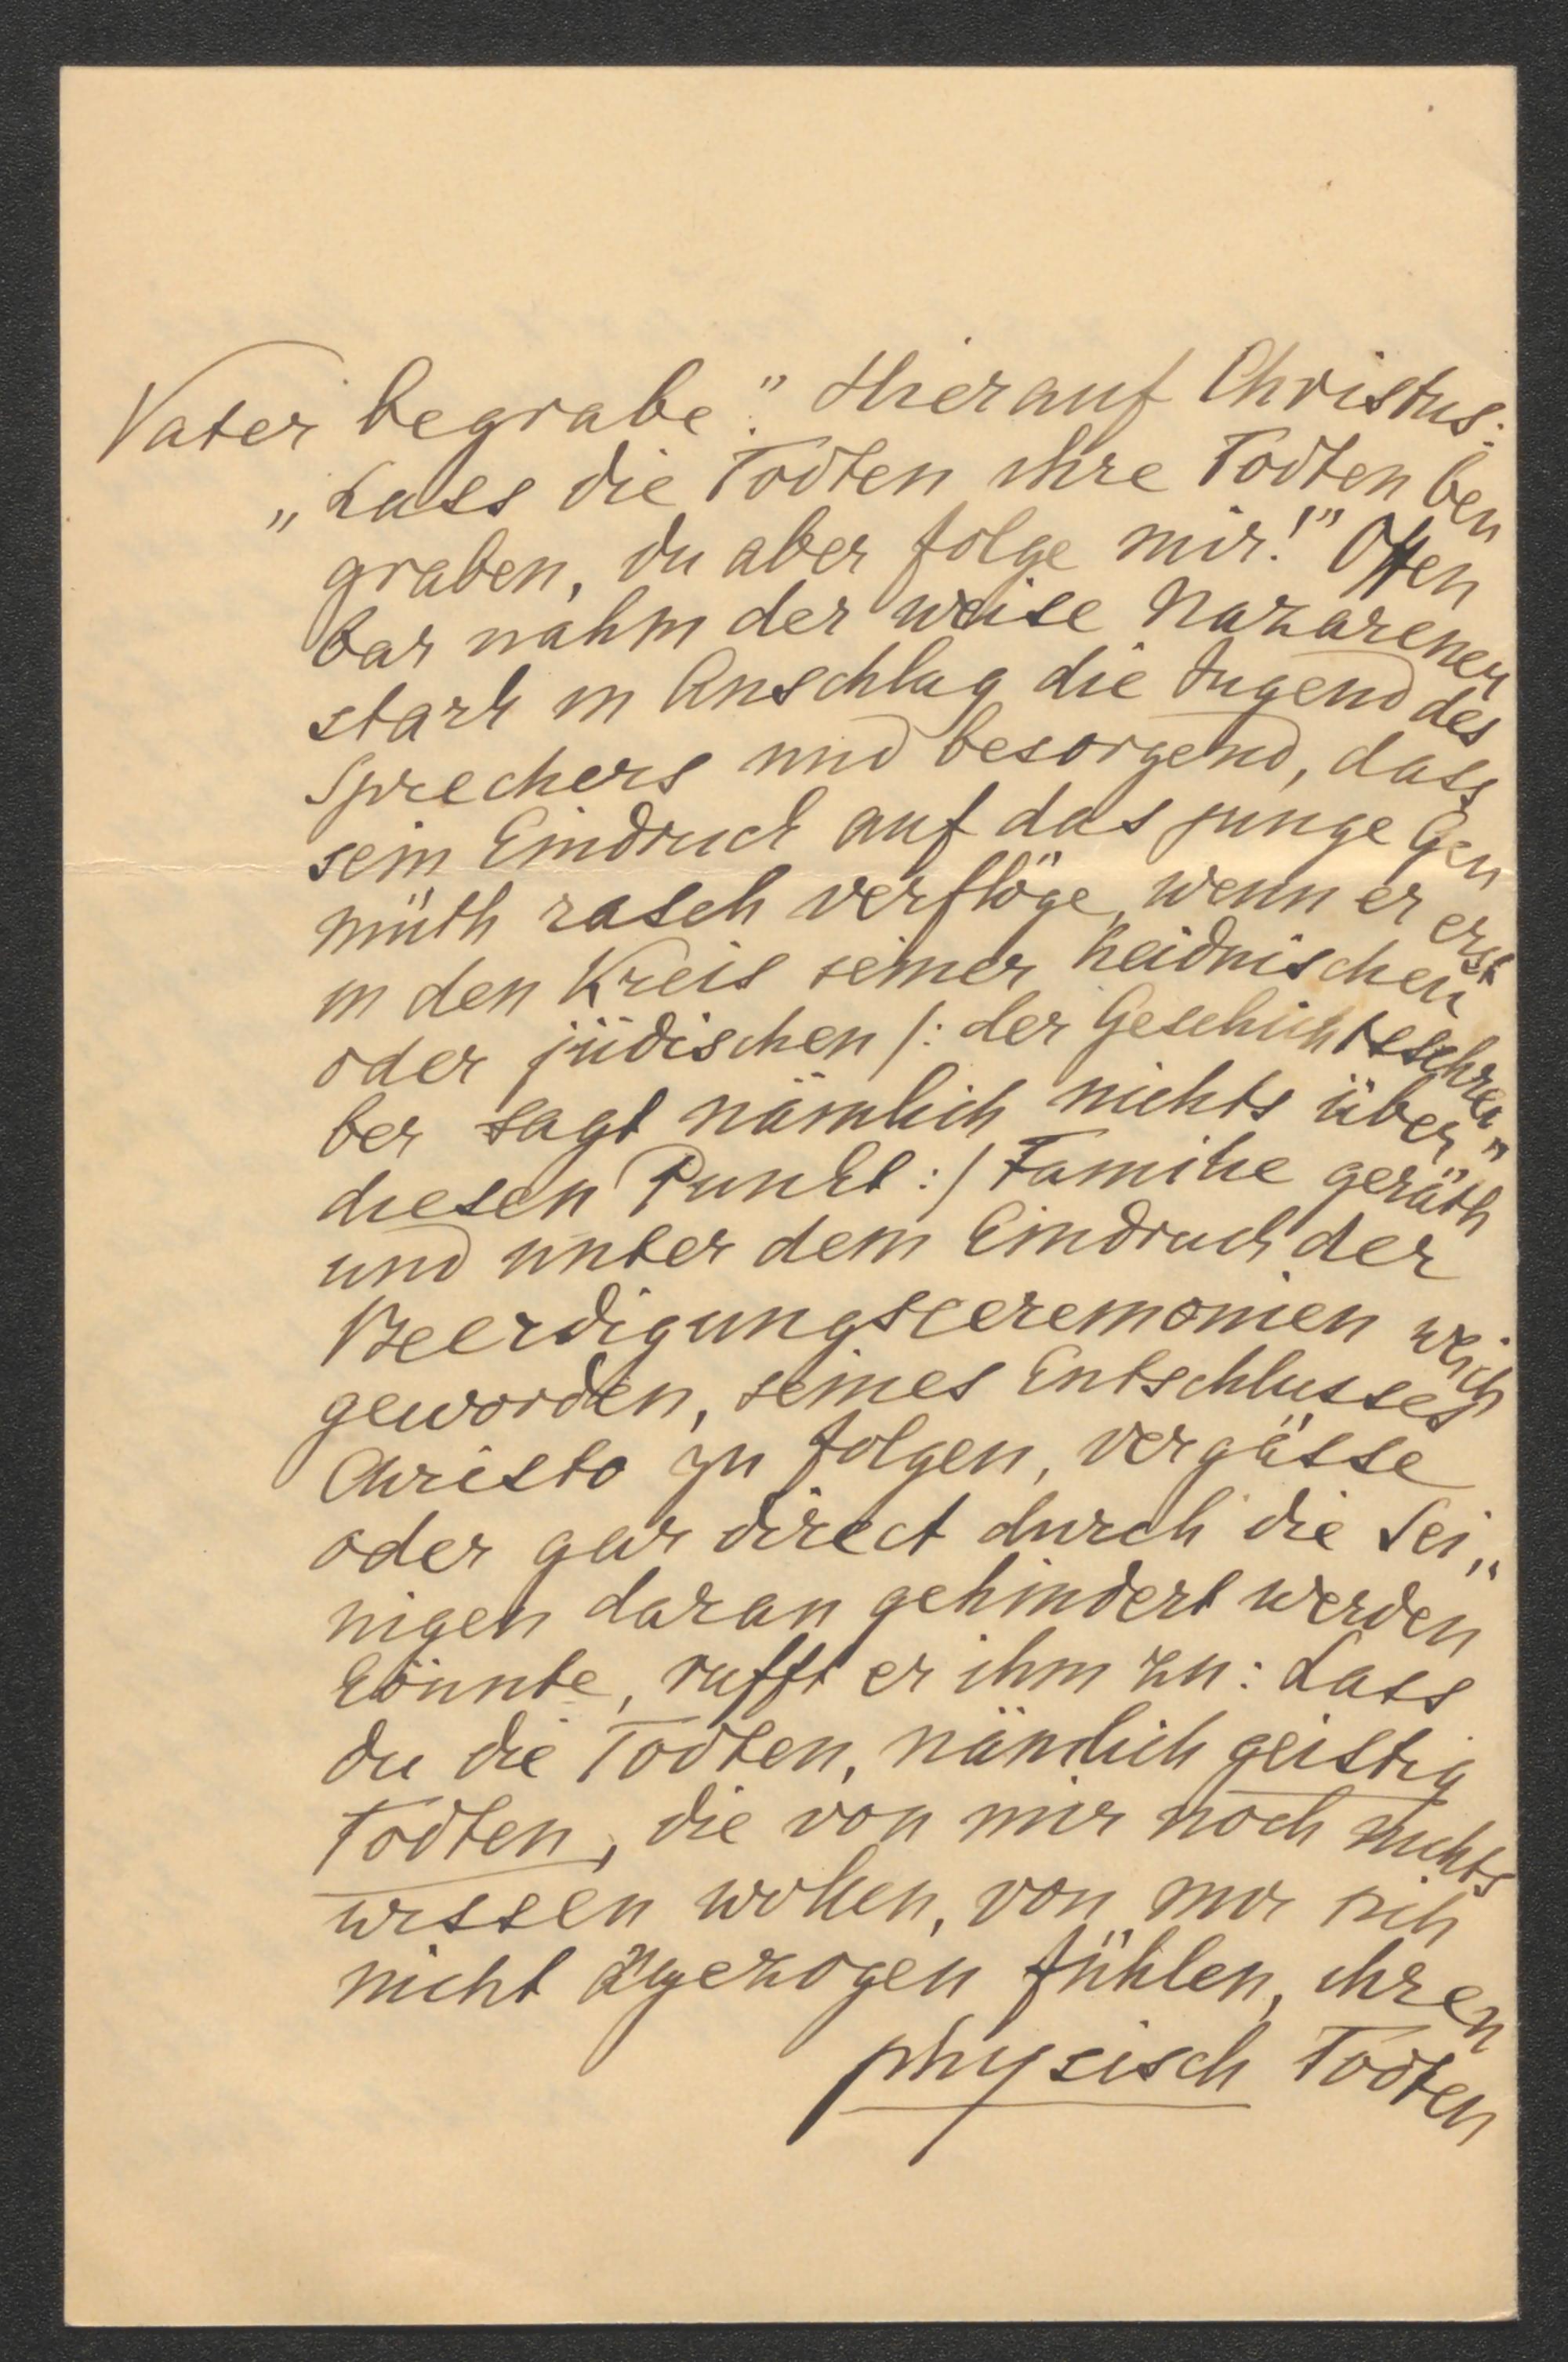 Vater begrabe." Hierauf Christus:
„Lass die Todten ihre Todten be„
graben, du aber folge mir!" Offen
bar nahm der weise Nazarener
stark in Anschlag die Jugend des
Sprechers und besorgend, dass
sein Eindruck auf das junge Ge„
müth rasch verflöge, wenn er erst
in den Kreis seiner heidnischen
oder jüdischen /: der Geschichtsschrei„
ber sagt nämlich nichts über
diesen Punkt :/ Familie geräth
und unter dem Eindruck der
Beerdigungsceremonien weich
geworden, seines Entschlusses
Christo zu folgen, vergässe
oder gar direct durch die Sei„
nigen daran gehindert werden
könnte, rufft er ihm zu: Lass
du die Todten, nämlich geistig
Todten, die von mir noch nichts
wissen wollen, von mir sich
nicht angezogen fühlen, ihren
physisch Todten